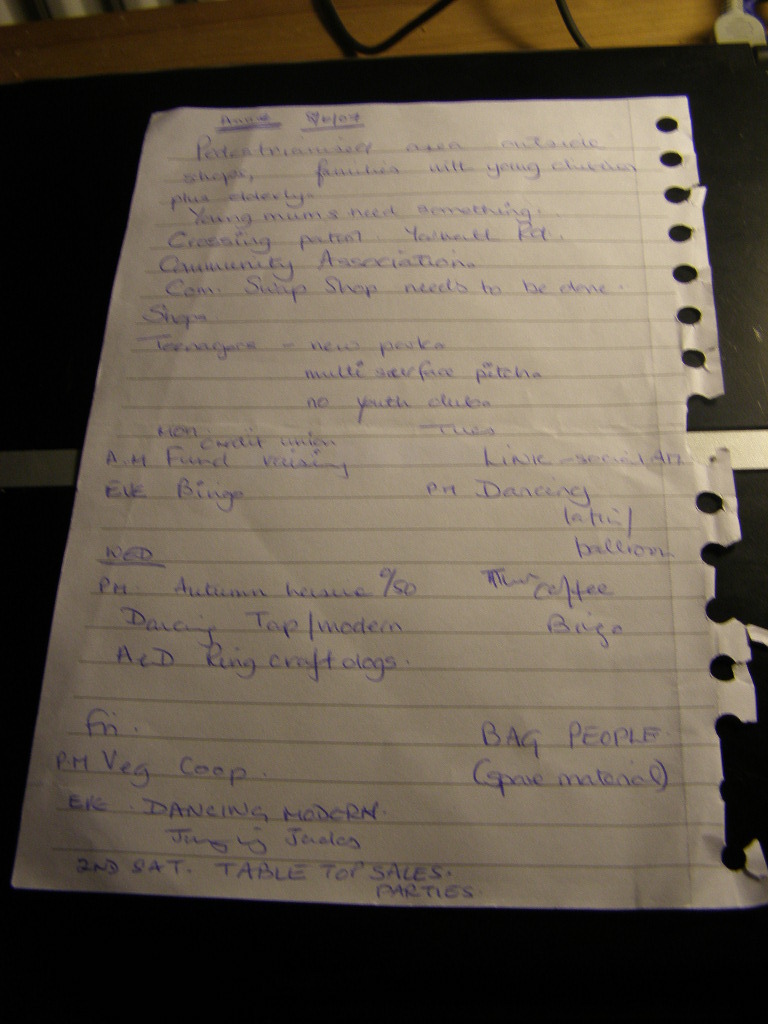 Pedestrianised area outside
shops, families with young children
plus elderly.
Young mums need something.
Crossing patrol. Rd.
Community Association.
Com. Swap Shop needs to be done.
Shops
Teenagers - new parks
multi surface pitch.
no youth clubs.
Mon Tues
credit union
A.M Fund raising Link - social
EVE Bingo PM Dancing
latin/
ballroom
WED
PM. Autumn leisure O/50 Thur coffee
Dancing Tap/modern Bingo
A & D Ring craft dogs.
Fri. BAG PEOPLE
PM Veg Coop. (spare material)
EVE. DANCING MODERN.
Judes
2ND SAT. TABLE TOP SALES.
PARTIES.